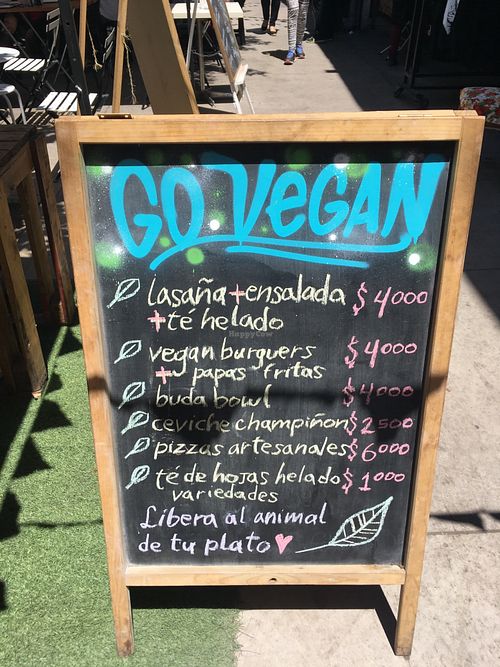 GO VEGAN
lasaña+ensalada $4000
+té helado
vegan burguers $4000
+ papas fritas
buda bowl $4000
ceviche champiñon $2500
pizzas artesanales $6000
té de hojas helado $1000
variedades
Libera al animal
de tu plato
HappyCow